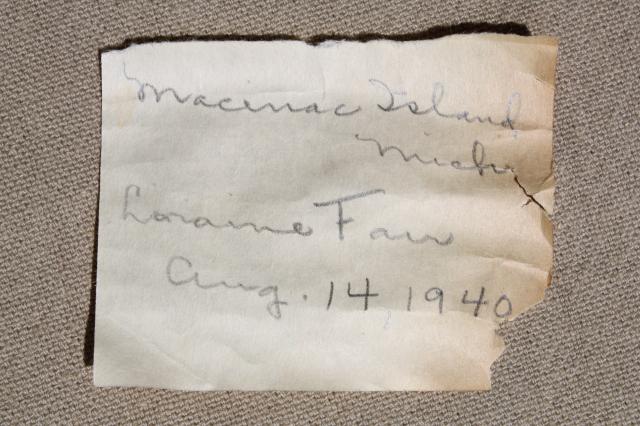 Macinac Island
Mich.
Loraine Fair
Aug. 14, 1940